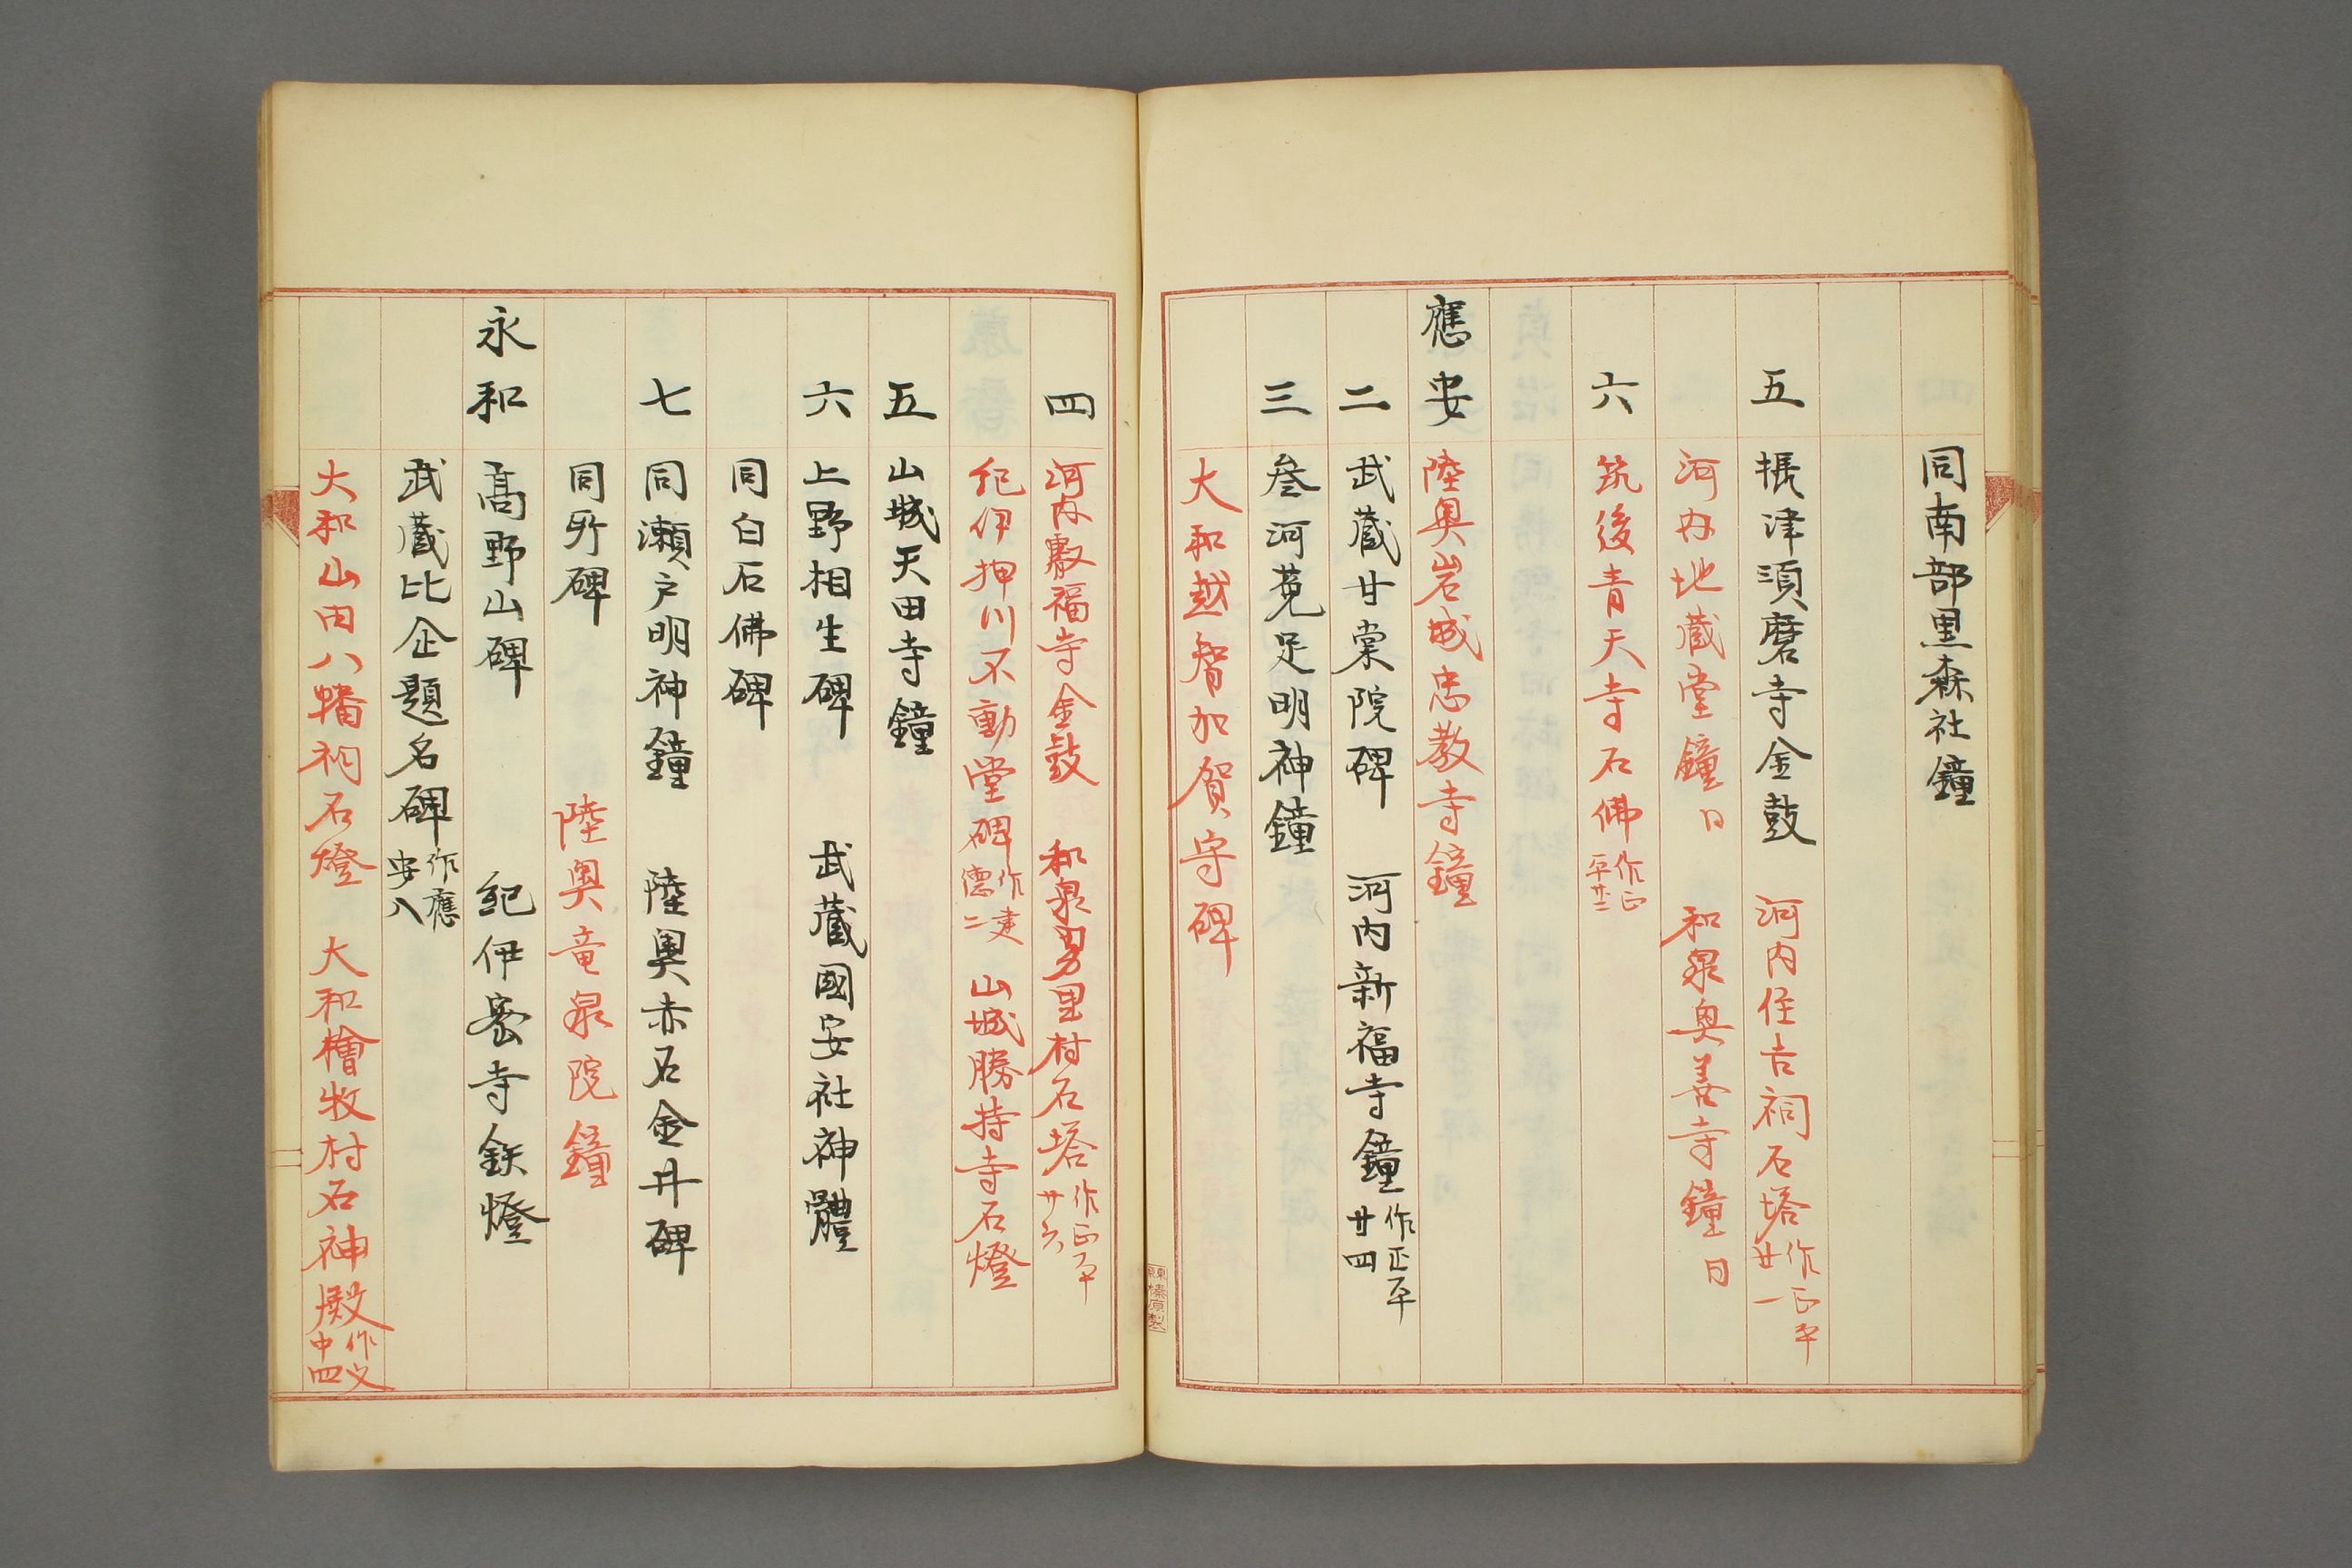 同南部黒森社鐘
五 振津須磨寺金鼓 河内住吉祠石塔 作正平廿一
河内地蔵堂鐘 日 和泉奥善寺鐘 日
六 筑後青天寺石佛 作正平廿二
應安 陸奥岩城忠教寺鐘
二 武蔵甘棠院碑 河内新福寺鐘 作正平廿四
三 叄河菟足明神鐘
大和越智加賀守碑
四 河内敷福寺金鼓 和泉男里村石塔 作正平廿六
紀伊押川不動堂碑 作建德二 山城勝持寺石燈
五 山城天田寺鐘
六 上野相生碑 武蔵國安社神體
同白石佛碑
七 同瀬戸明神鐘 陸奥赤石金井碑
同所碑 陸奥竜泉院鐘
永和 髙野山碑 紀伊宻寺鉄燈
武蔵比企題名碑 作應安八
大和山田八幡祠石燈 大和檜牧村石神殿 作文中四
東京榛原製